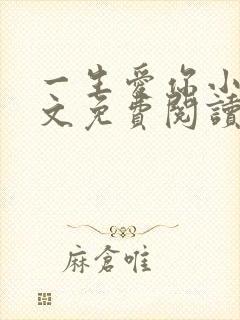 一生愛你小
文免費閱讀
麻倉唯